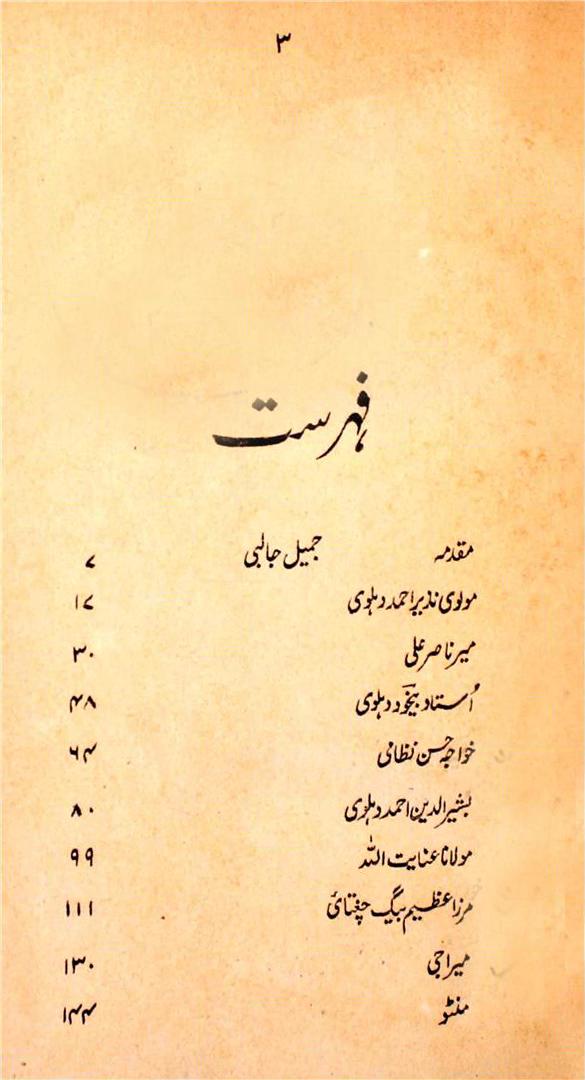 ۳
فہرست
مقدمہ جمیل جالبی ۷
مولوی نذیر احمد دہلوی ۱۷
میر ناصر علی ۳۰
اُستاد بیخود دہلوی ۴۸
خواجہ حسن نظامی ۶۴
بشیر الدین احمد دہلوی ۸۰
مولانا عنایت اللہ ۹۹
مرزا عظیم بیگ چغتائی ۱۱۱
میرا جی ۱۳۰
منٹو ۱۴۴